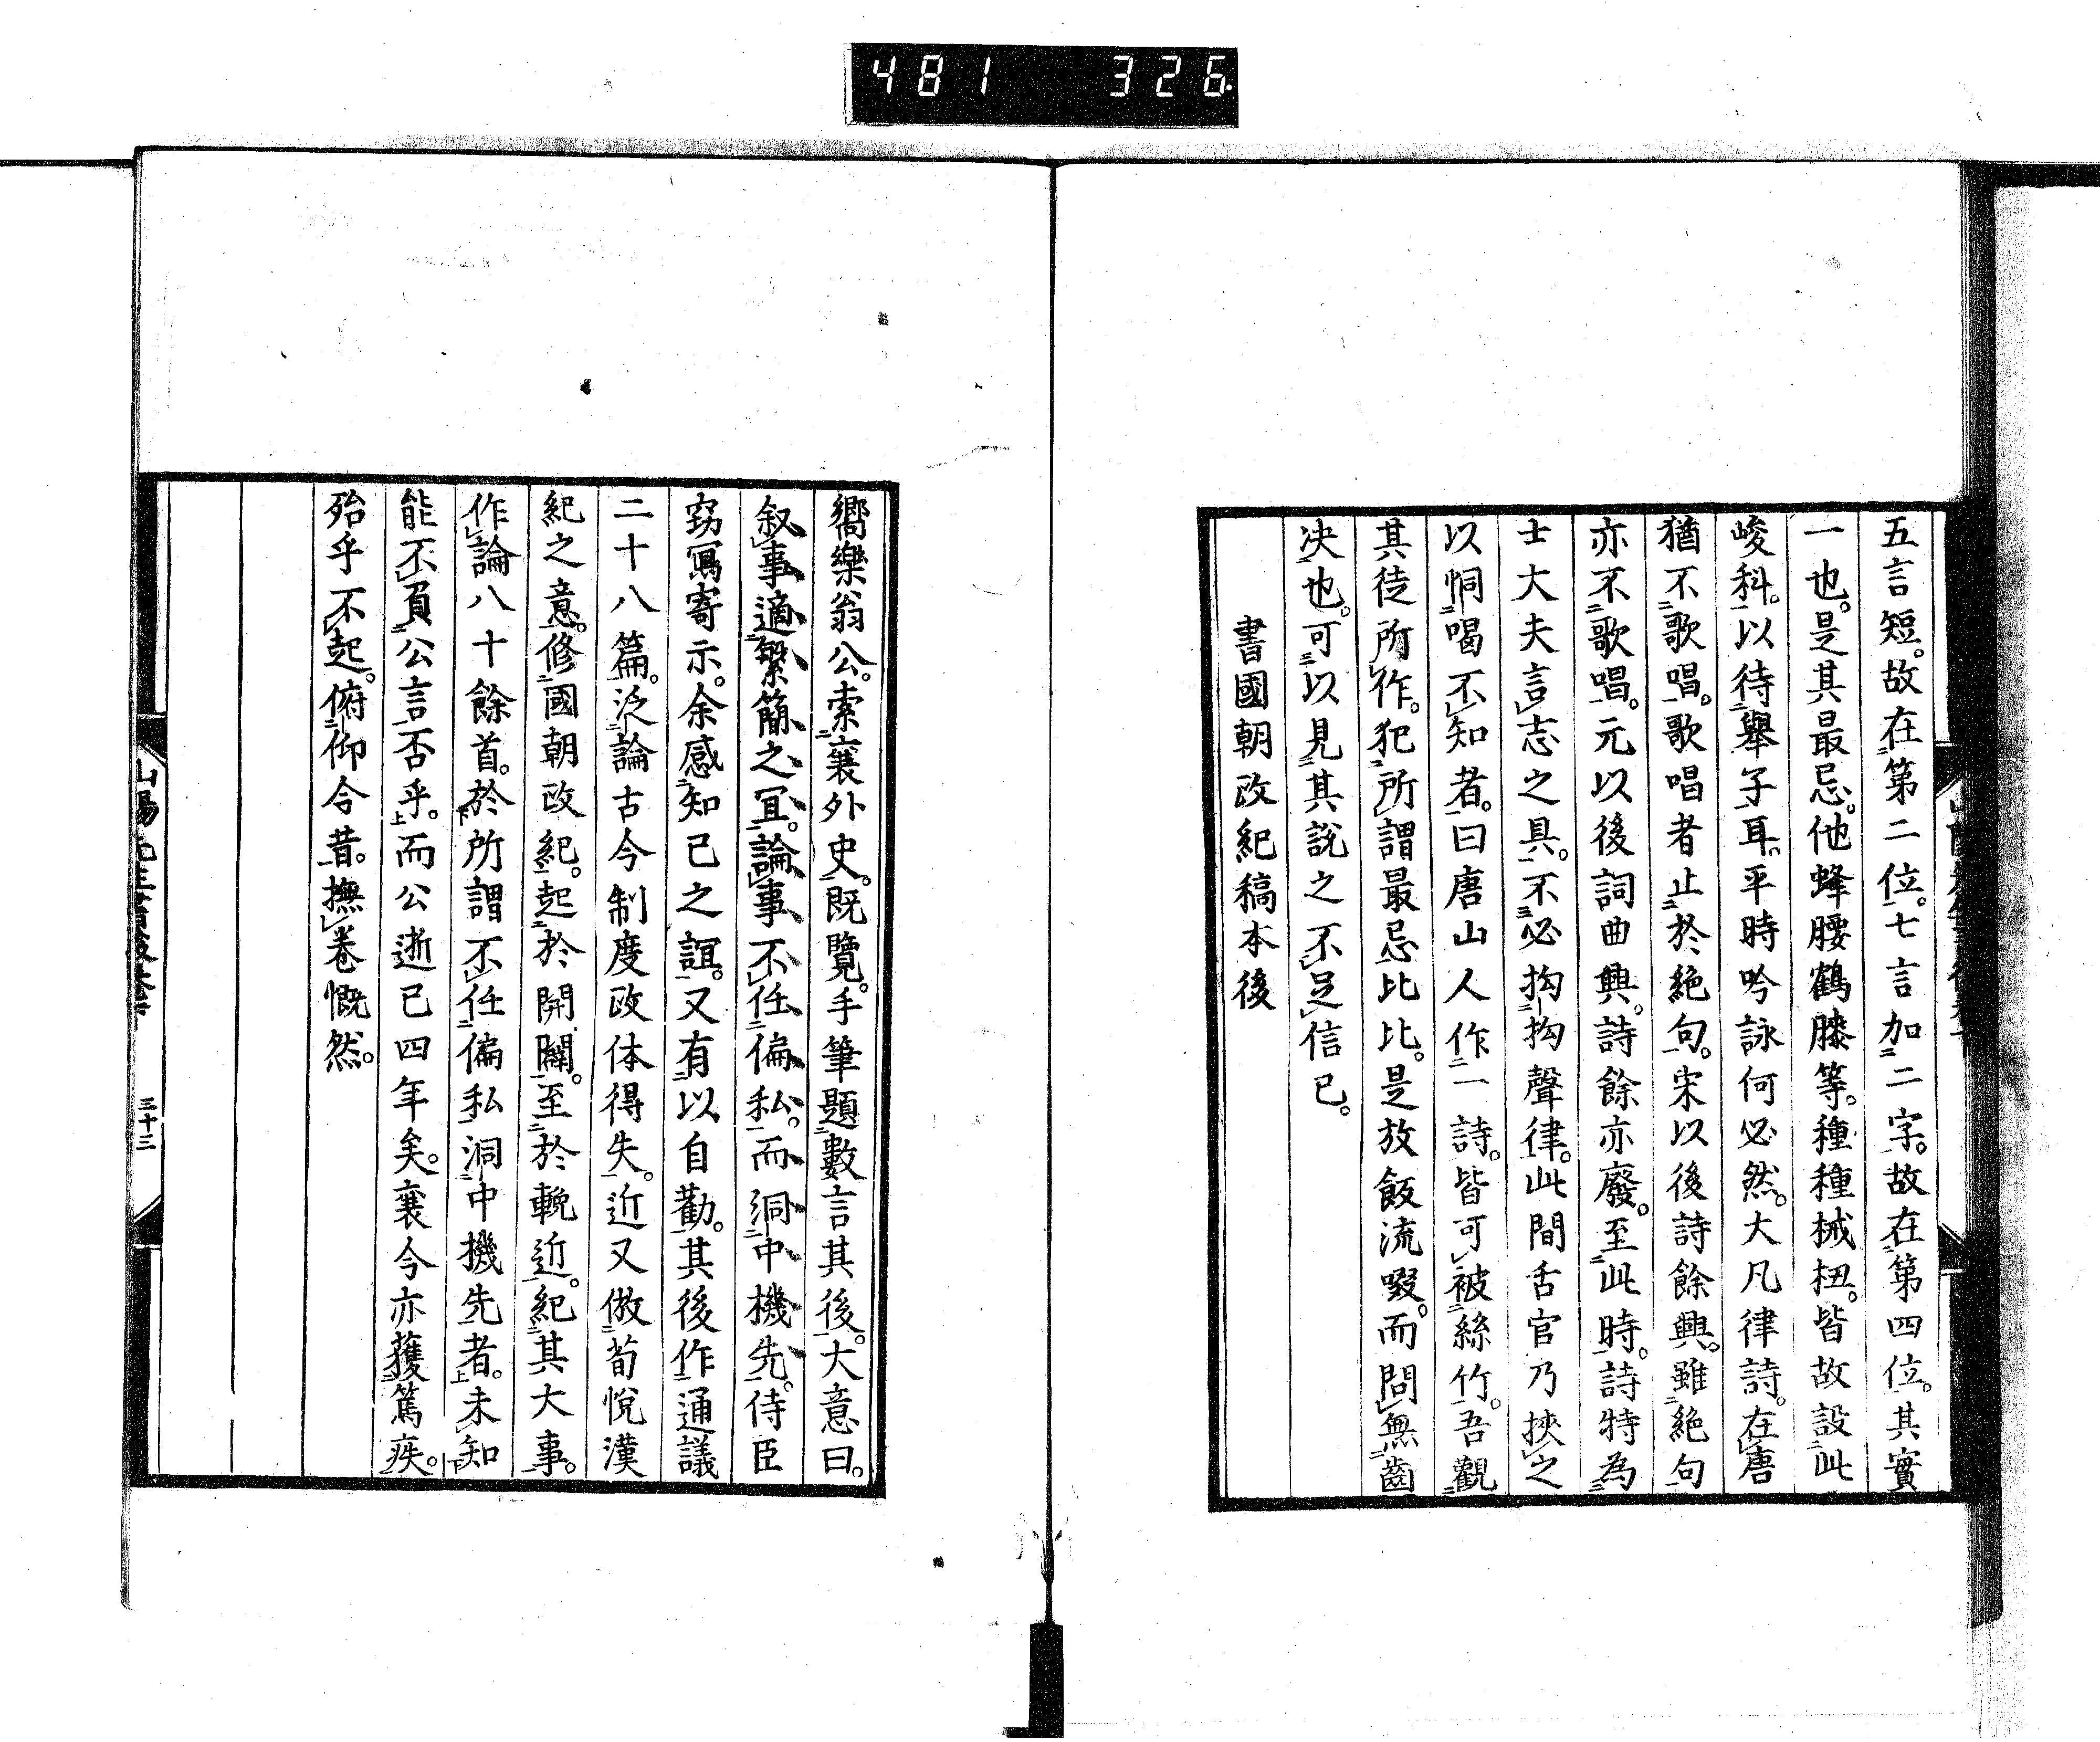 481 326
五言短。故在第二位。七言加二字。故在第四位。其實
一也。是其最忌。他蜂腰鶴膝等。種種械杻。皆故設此
峻科。以待舉子耳。平時吟詠何必然。大凡律詩。在唐
猶不歌唱。歌唱者止於絕句。宋以後詩餘興。雖絕句
亦不歌唱。元以後詞曲興。詩餘亦廢。至此時。詩特為
士大夫言志之具。不必拘拘聲律。此間舌官乃挾之
以恫喝不知者。曰唐山人作一詩。皆可被絲竹。吾觀
其徒所作。犯所謂最忌比比。是放飯流啜。而問無齒
决也。可以見其說之不足信已。
書國朝政紀稿本後
嚮樂翁公。索襄外史。既覽。手筆題數言其後。大意曰。
叙事適繁簡之冝。論事不任偏私。而洞中機先。侍臣
竊寫寄示。余感知己之誼。又有以自勸。其後作通議
二十八篇。泛論古今制度政体得失。近又倣荀悅漢
紀之意。修國朝政紀。起於開闢。至於輓近。紀其大事。
作論八十餘首。於所謂不任偏私洞中機先者。未知
能不負公言否乎。而公逝已四年矣。襄今亦獲篤疾。
殆乎不起。俯仰今昔。撫卷慨然。
三十三